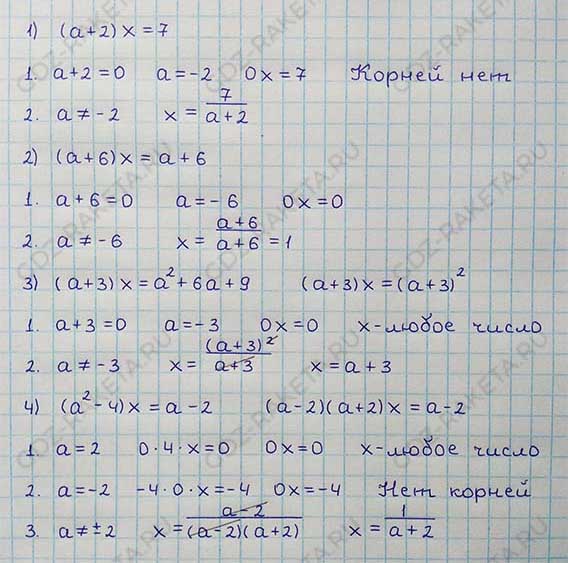 1) (a+2)x=7
1. a+2=0 a=-2 0x=7 Корней нет
2. a≠-2 x=7/(a+2)
2) (a+6)x=a+6
1. a+6=0 a=-6 0x=0
2. a≠-6 x=(a+6)/(a+6)=1
3) (a+3)x=a²+6a+9 (a+3)x=(a+3)²
1. a+3=0 a=-3 0x=0 x-любое число
2. a≠-3 x=(a+3)²/(a+3) x=a+3
4) (a²-4)x=a-2 (a-2)(a+2)x=a-2
1. a=2 0·4·x=0 0x=0 x-любое число
2. a=-2 -4·0·x=-4 0x=-4 Нет корней
3. a≠±2 x=(a-2)/((a-2)(a+2)) x=1/(a+2)
GDZ-RAKETA.RU